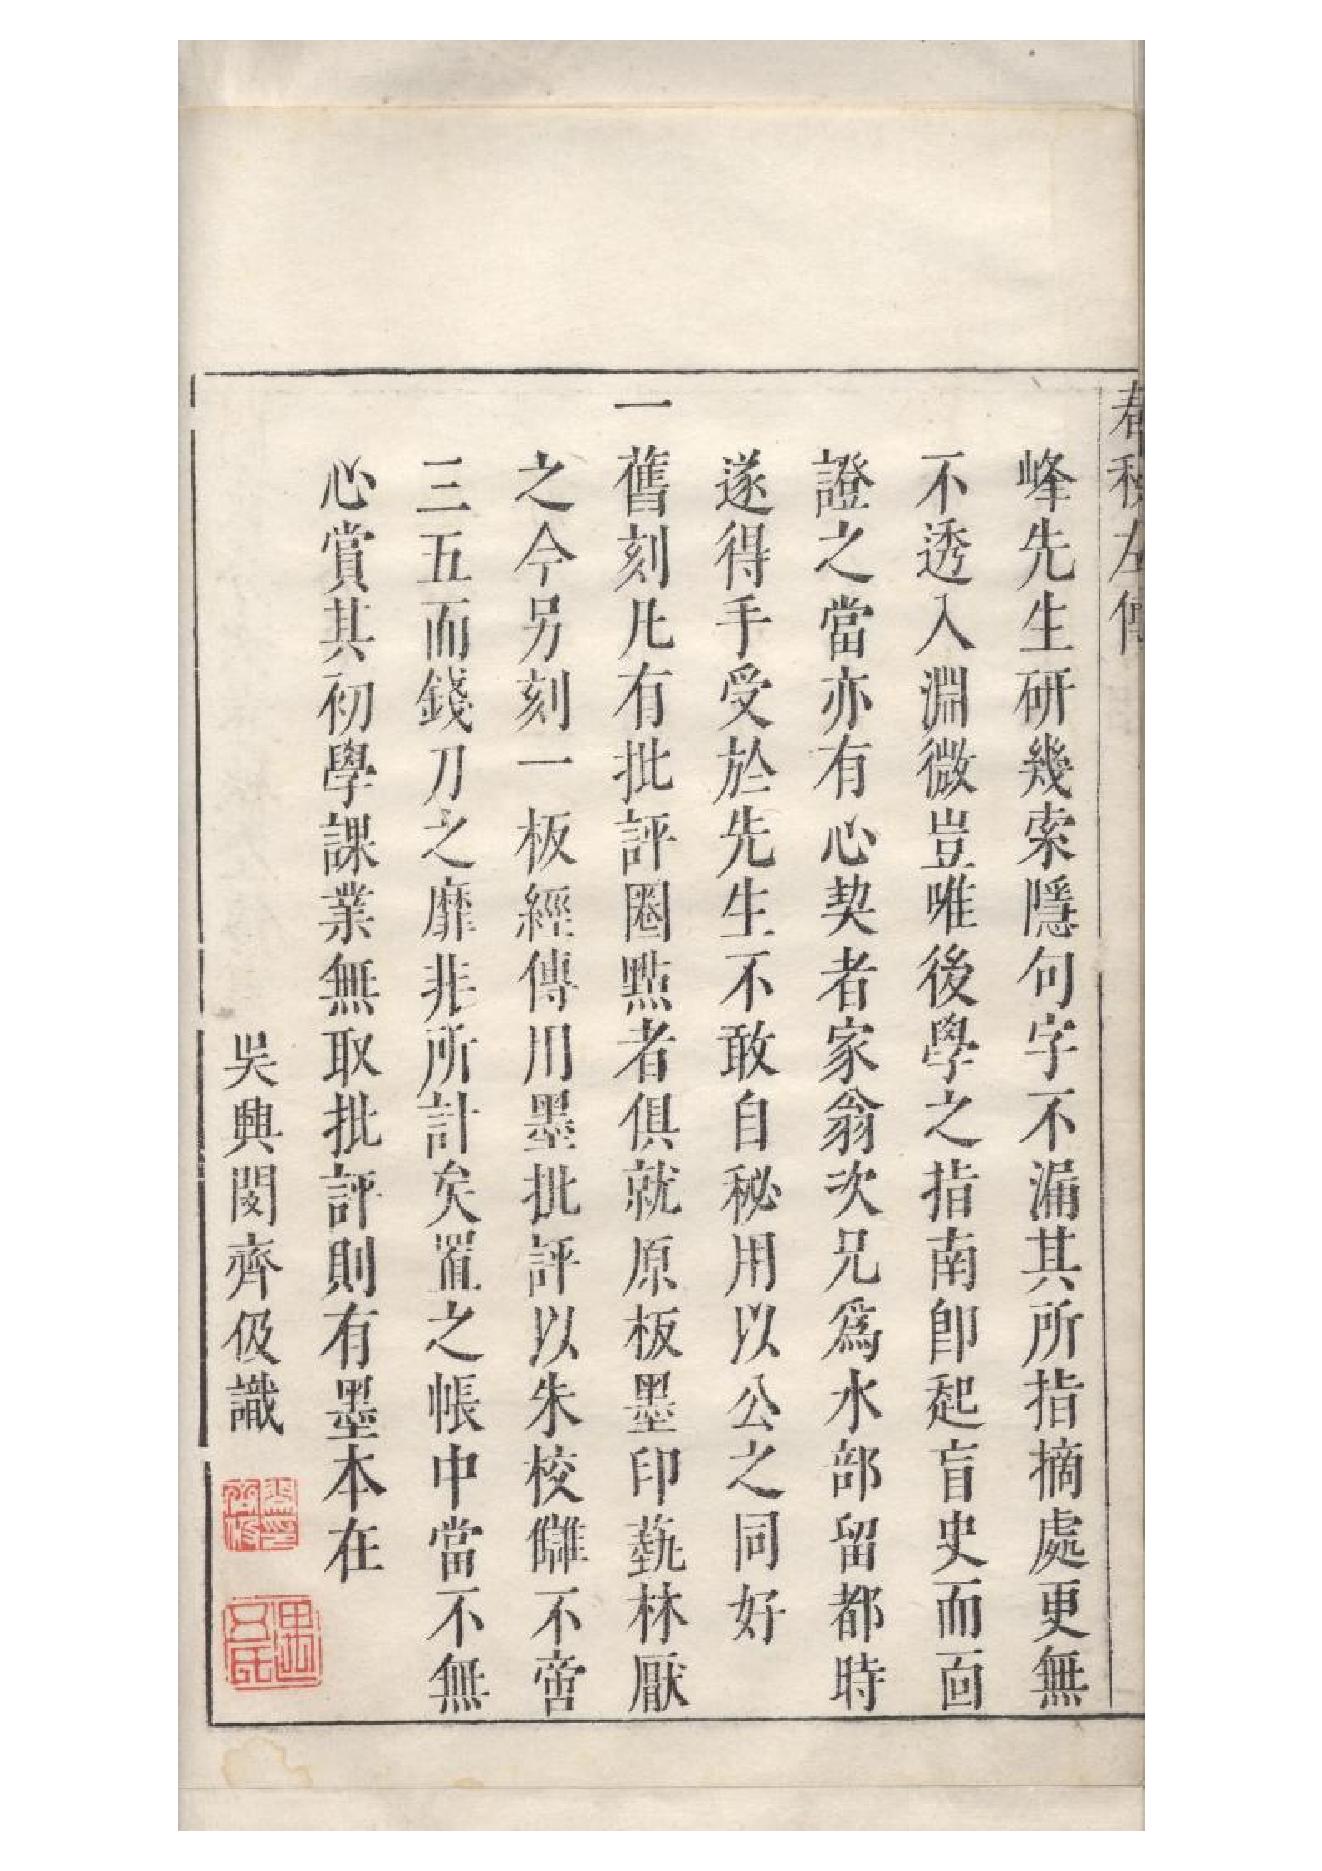 春秋左傳
峰先生研幾索隱句字不漏其所指摘處更無
不透入淵微豈唯後學之指南卽起盲史而面
證之當亦有心契者家翁次兄爲水部留都時
遂得手受於先生不敢自秘用以公之同好
一舊刻凡有批評圈點者俱就原板墨印蓺林厭
之今另刻一板經傳用墨批評以朱校讎不啻
三五而錢刀之靡非所計矣置之帳中當不無
心賞其初學課業無取批評則有墨本在
吳興閔齊伋識